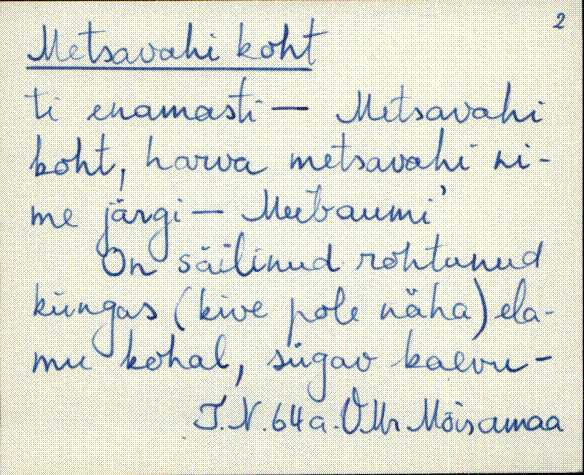 2
Metsavahi koht
ti enamasti — Metsavahi
koht, harva metsavahi ni-
me järgi — Meibaumi'
On säilinud rohtunud
küngas (kive pole näha) ela-
mu kohal, sügav kaevu-
J.N. 64 a. Mõisamaa